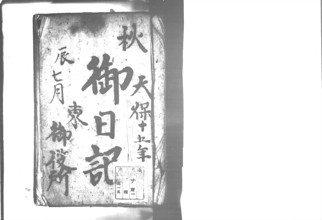 秋
天保十五年
御日記
辰七月
東
御役所